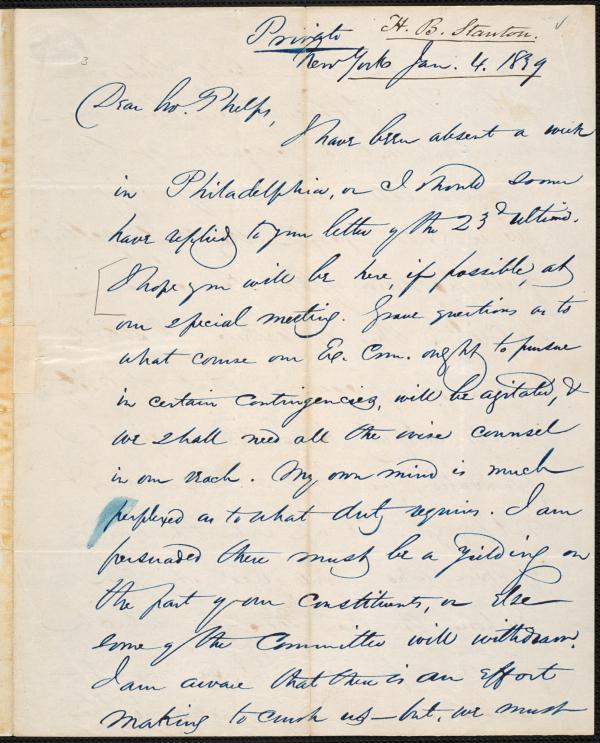 Private
H. B. Stanton.
New York Jan. 4. 1839
3
Dear bro. Phelps,
I have been absent a week
in Philadelphia, or I should sooner
have replied to your letter of the 23d ultimo.
I hope you will be here, if possible, at
our special meeting. Grave questions as to
what course our Ex. Com. ought to pursue
in certain contingencies, will be agitated, &
we shall need all the wise counsel
in our reach. My own mind is much
perplexed as to what duty requires. I am
persuaded there must be a yielding on
the part of our constituents, or else
some of the Committee will withdraw.
I am aware that there is an effort
making to crush us — but, we must